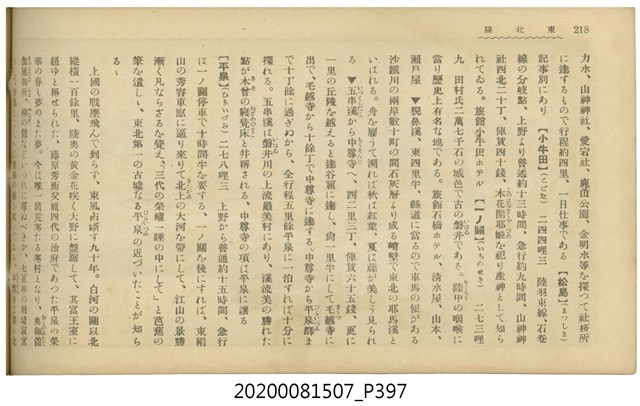 東北篇 218
力水、山神神社、愛宕社、鹿山公園、金明水等を探つて社務所
に達するもので行程約四里、一日仕事である 【松島】(まつしま)
記事別にあり 【小牛田】(こごた) 二四四哩三 陸羽東線、石卷
線の分岐點、上野より普通約十三時間、急行約九時間、山神神
社西北二十丁、俥賃四十錢、木花開耶姫を祀り産神として知ら
れてゐる。旅館小牛田ホテル 【一ノ關】(いちのせき) 二七三哩
九 田村氏二萬七千石の城邑で古の磐井である。陸甲の咽喉に
當り歷史上有名な地である。旅館石橋ホテル、清水屋、山本、
瀬戸屋 ▼猊鼻溪、東四里半、縣道に當るので車馬の便がある
砂鐵川の兩岸數十町の間石灰層より成る峭壁で東北の耶馬溪と
いはれる。舟を雇うて溯れば秋は紅葉、夏は藤が美しう見られ
る ▼五串溪から中尊寺へ、西二里三丁、俥賃六十五錢、更に
一里の丘陵を越えると達谷窟に達し、尚一里半にして毛越寺に
出で、毛越寺から十餘丁で中尊寺に達する。中尊寺から平泉驛ま
で十丁餘に過ぎぬから、全行程五里餘平泉に一泊すれば十分に
探れる。五串溪は磐井川の上流嚴美村にあり、溪流美の勝れた
點が木曾の寢覺床と并稱される、中尊寺の項は平泉に讓る
【平泉】(ひらいづみ) 二七八哩三 上野から普通約十五時間、急行
は一ノ關停車で十時間半を要する、一ノ關を後にすれば、束稻
山の秀容車窓に逼り來りて北上の大河を帶にして、江山の景勝
漸く凡ならざるを覺え「三代の榮耀一睡の中にして」と芭蕉の
筆を遺し、東北第一の古墟なる平泉の近づいたことが知ら
るゝ
上國の戰塵飛んで到らず、東風占斷す九十年。白河の關以北
縱横一百餘里、陸奥の黄金花咲く大野に盤踞して、其富王室に
超ゆと稱せられた、藤原秀衡父祖四代の治府であつた平泉の榮
華の春も夢のまた夢。今は唯一間荒寒たる寒村となり、
20200081507_P397